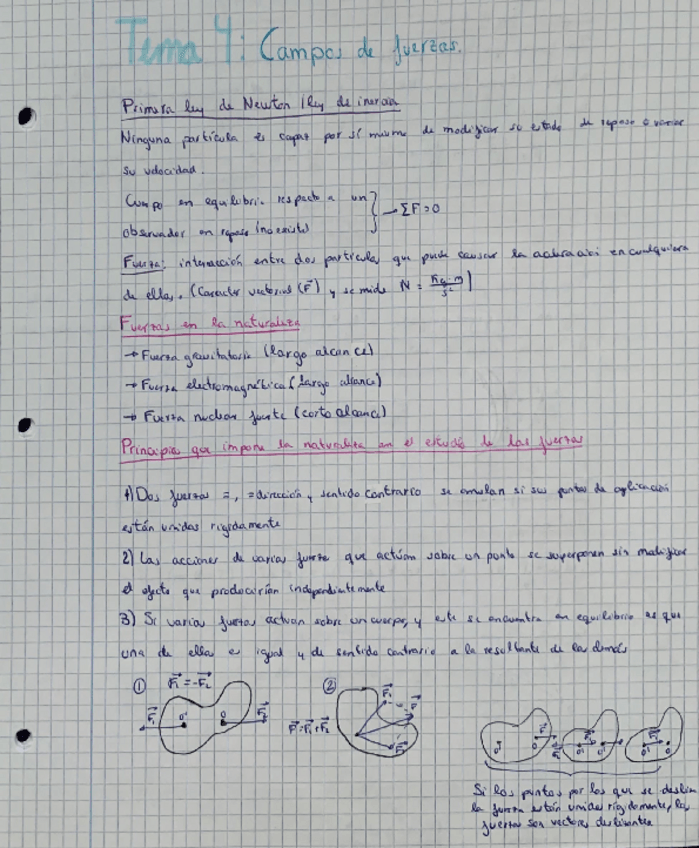 Tema 4: Campos de fuerzas.
Primera ley de Newton / ley de inercia
Ninguna partícula es capaz por sí misma de modificar su estado de reposo o variar
su velocidad.
Cuerpo en equilibrio respecto a un
observador en reposo (no existe) } → ΣF=0
Fuerza: interacción entre dos partículas que puede causar la aceleración en cualquiera
de ellas. (Caracter vectorial (F⃗) y se mide N = kg·m/s²)
Fuerzas en la naturaleza
→ Fuerza gravitatoria (largo alcance)
→ Fuerza electromagnética (largo alcance)
→ Fuerza nuclear fuerte (corto alcance)
Principios que impone la naturaleza en el estudio de las fuerzas
1) Dos fuerzas =, = dirección y sentido contrario se anulan si sus puntos de aplicación
están unidos rígidamente
2) Las acciones de varias fuerzas que actúan sobre un punto se superponen sin modificar
el efecto que producirían independientemente
3) Si varias fuerzas actúan sobre un cuerpo, y este se encuentra en equilibrio es que
una de ellas es igual y de sentido contrario a la resultante de las demás
① F⃗₁=-F⃗₂
F⃗₁ O' O F⃗₂
②
F⃗=F⃗₁+F⃗₂
F⃗₁ F⃗ F⃗₂
O' O
Si los puntos por los que se desliza
la fuerza están unidos rígidamente, las
fuerzas son vectores deslizantes